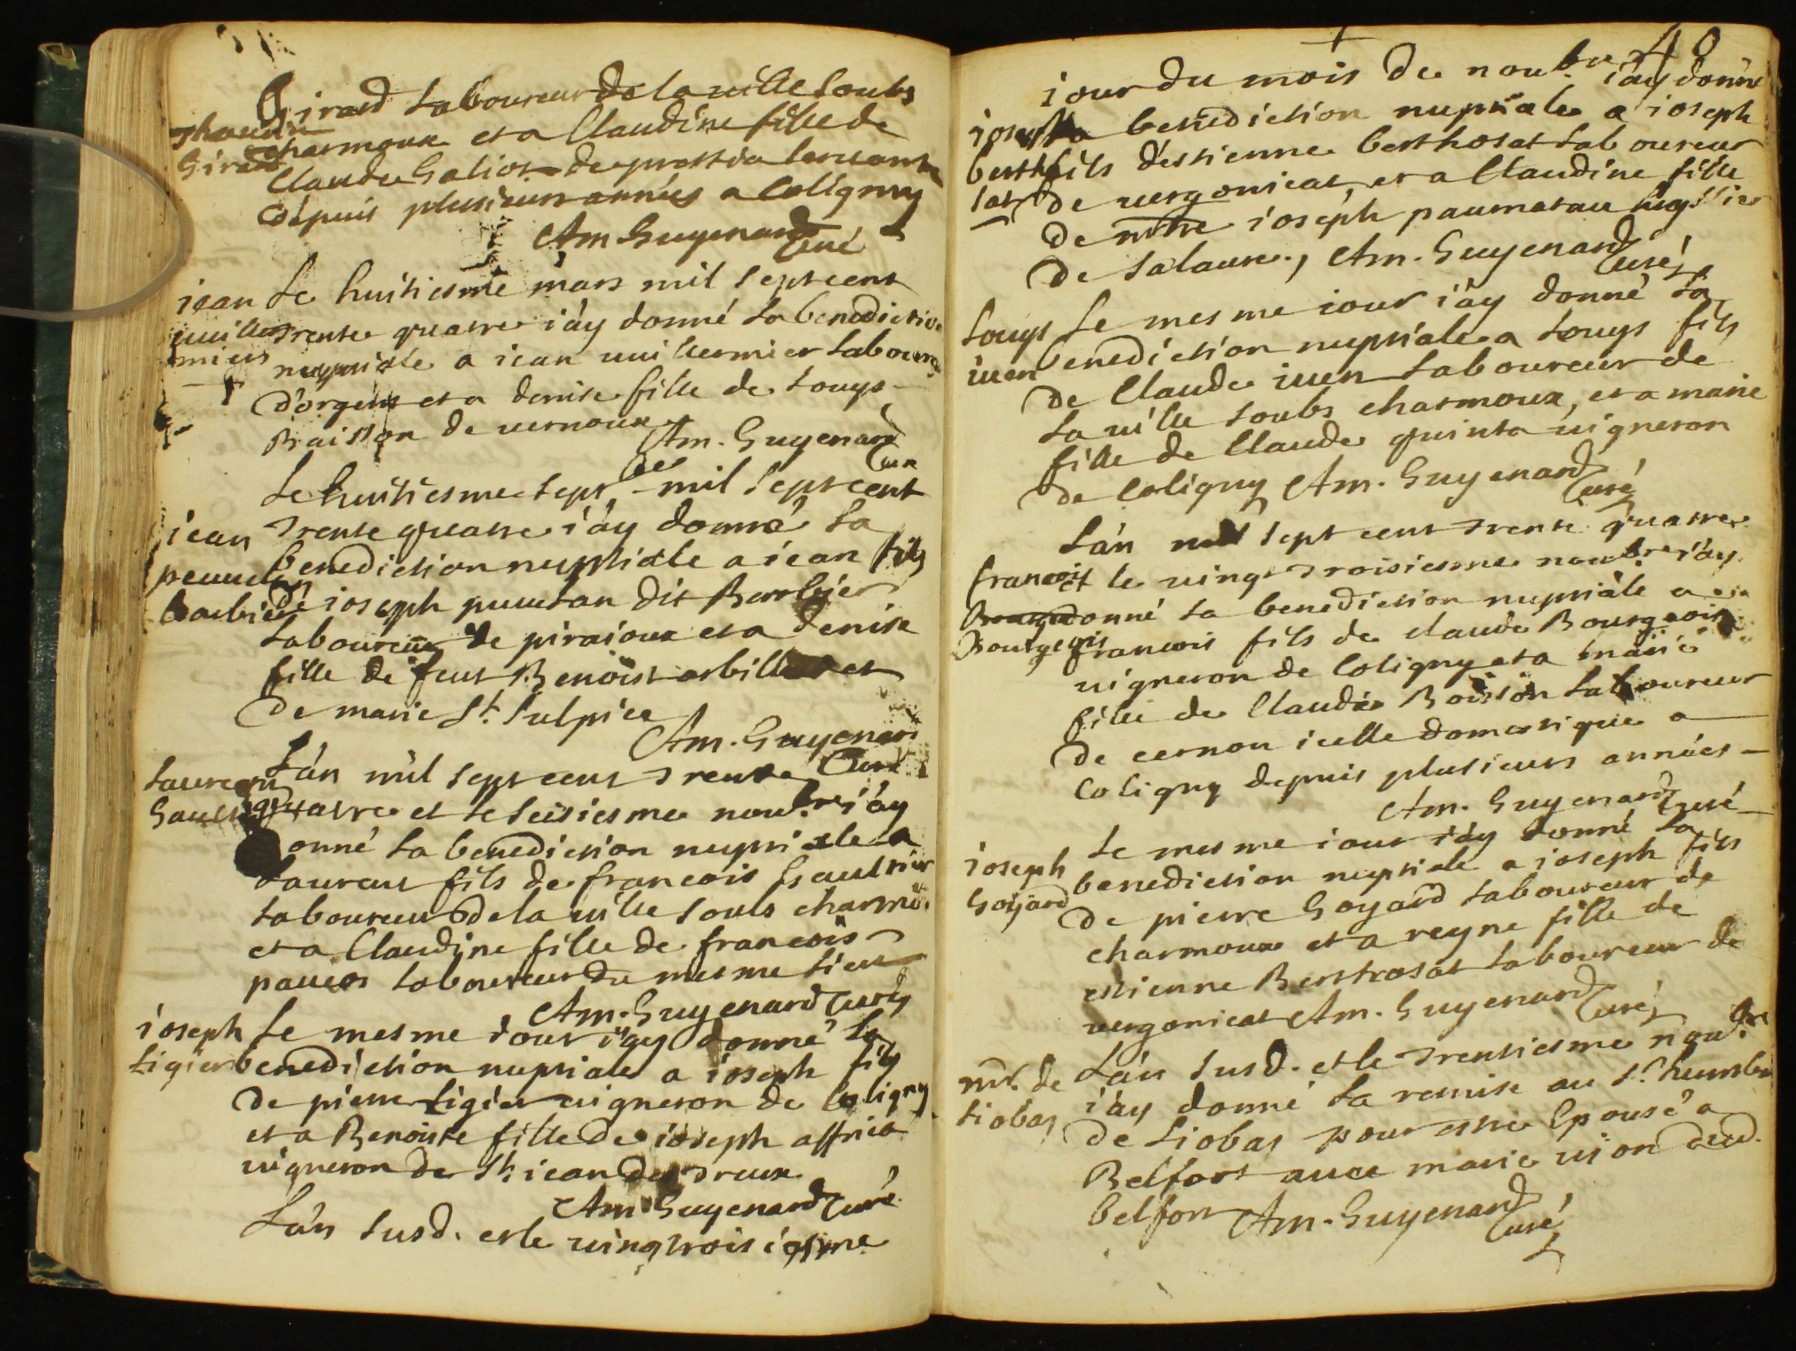 Girard laboureur de la ville soubs
charmoux et a Claudine fille de
Girard
Claude Galiot de servante
depuis plusieurs années a Colligny
Am Guyenard Curé
jean
Le huitiesme mars mil sept cent
trente quatre i'ay donné la benediction
nuptiale a jean uuillermier labour
d'orgeut et a denise fille de Louys
de uernoux
Am. Guyenard Cur
Le huitiesme sept.bre mil sept cent
jean
trente quatre i'ay donné la
benediction nuptiale a iean fils
barbier
de ioseph puuetan dit Barbier
laboureur de piraioux et a denise
fille de feut Benoist et
de marie St. Sulpice
Am. Guyenard Curé
L'an mil sept cent trente
Laurent
quatre et le seisiesme nou.bre i'ay
donné la benediction nuptiale a
Laurent fils de francois Gaultier
laboureur de la uille soubs charmo.
et a Claudine fille de francois
laboureur du mesme lieu
Am. Guyenard Curé
ioseph
Le mesme iour i'ay donné la
Ligier
benediction nuptiale a ioseph fils
de pierre Ligier uigneron de Coligny
et a Benoiste fille de ioseph
uigneron de St. iean des treux
Am Guyenard Curé
L'an susd. et le uingtroisiesme
48
iour du mois de nou.bre i'ay donné
ioseph
la benediction nuptiale a ioseph
fils d'estienne berthosat laboureur
de uergonieat, et a Claudine fille
de ioseph
de Salaure, Am. Guyenard Curé
Louys
Le mesme iour i'ay donné la
iuen
benediction nuptiale a Louys fils
de Claude iuen laboureur de
la uille soubs charmoux, et a marie
fille de Claude quinta uigneron
de Coligny Am. Guyenard Curé
L'an mil sept cent trente quatre
francois
et le uingt troisiesme nou.bre i'ay
donné la benediction nuptiale a
Bourgeois
francois fils de claude Bourgeois
uigneron de Coligny et a marie
fille de Claude Boisson laboureur
de cernon icelle domestique a
Coligny depuis plusieurs années
Am. Guyenard Curé
Le mesme iour i'ay donné la
ioseph
benediction nuptiale a ioseph fils
Goyard
de pierre Goyard laboureur de
charmoux et a reyne fille de
estienne Berthosat laboureur de
uergonieat Am. Guyenard Curé
mr. de
L'an susd. et le trentiesme nou.bre
Liobas
i'ay donné la remise au Sr.
de Liobas pour estre Epousé a
Belfort auec marie uion dud.
belfort Am. Guyenard Curé